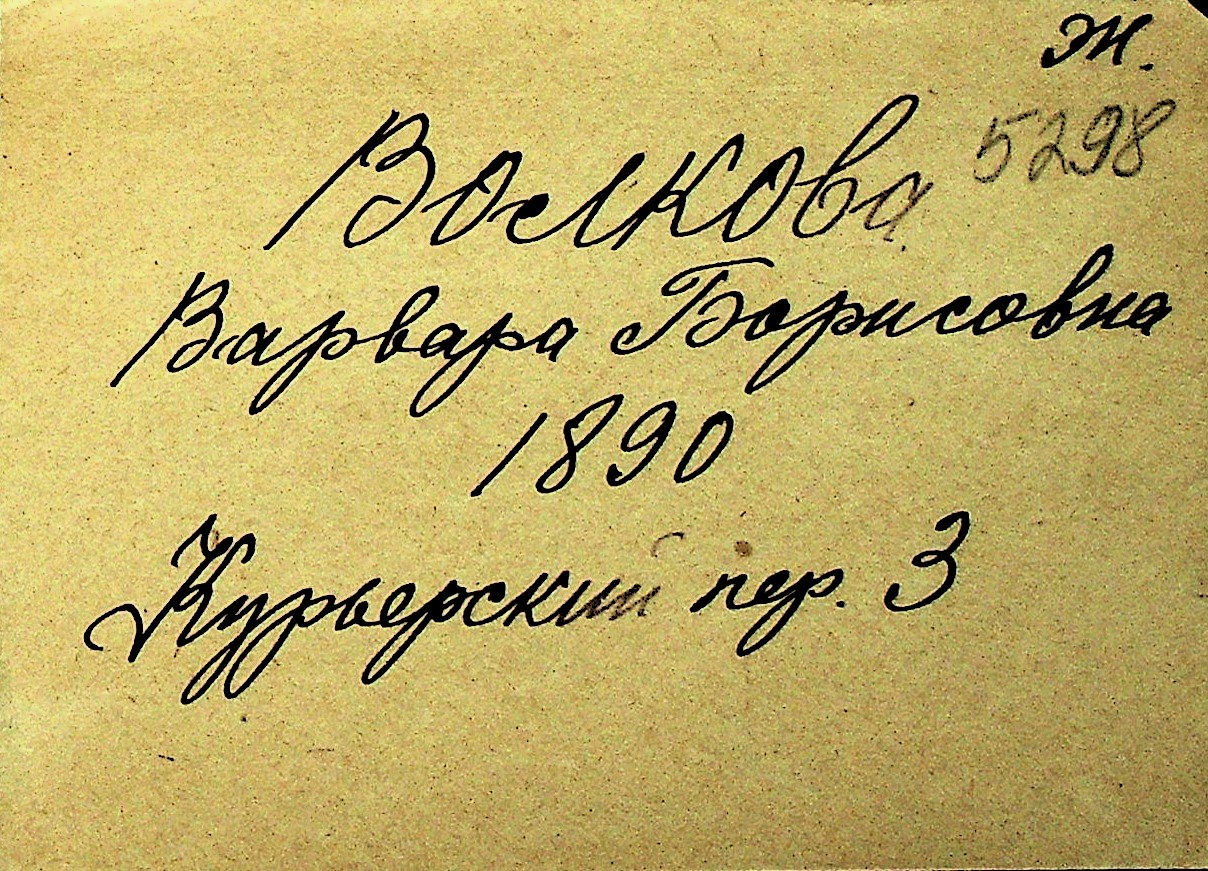 ж.
5298
Волкова
Варвара Борисовна
1890
Курьерский пер. 3